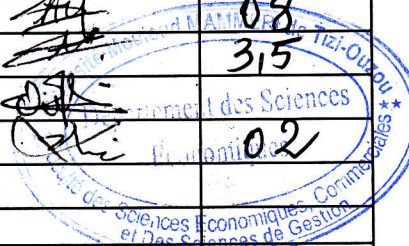 08
Université Mouloud MAMMERI de Tizi-Ouzou
3,5
Département des Sciences
02
Economiques
Faculté des Sciences Economiques, Commerciales
et Des Sciences de Gestion